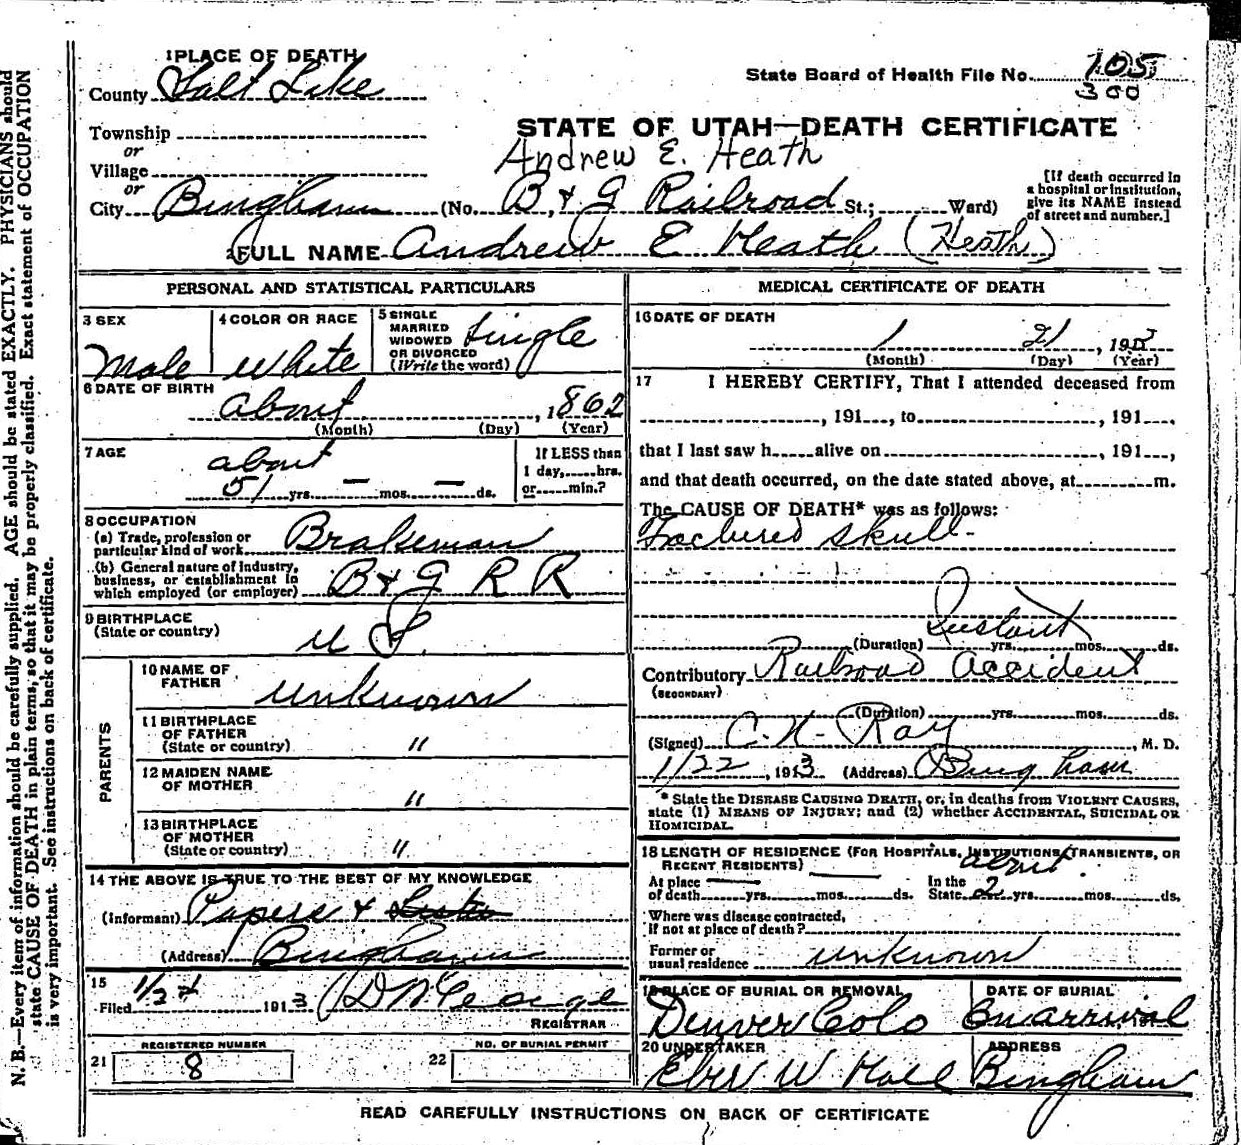 N. B.—Every item of information should be carefully supplied. AGE should be stated EXACTLY. PHYSICIANS should
state CAUSE OF DEATH in plain terms, so that it may be properly classified. Exact statement of OCCUPATION
is very important. See instructions on back of certificate.
1 PLACE OF DEATH
County Salt Lake
State Board of Health File No. 105
300
Township
or
Village
or
City Bingham
STATE OF UTAH—DEATH CERTIFICATE
Andrew E. Heath
(No. B & G Railroad St.; Ward)
[If death occurred in
a hospital or institution,
give its NAME instead
of street and number.]
2 FULL NAME Andrew E Heath (Heath)
PERSONAL AND STATISTICAL PARTICULARS
3 SEX
Male
4 COLOR OR RACE
White
5 SINGLE
MARRIED
WIDOWED
OR DIVORCED
(Write the word)
Single
6 DATE OF BIRTH
About , 1862
(Month) (Day) (Year)
7 AGE
about
51 yrs. — mos. — ds.
If LESS than
1 day, hrs.
or min.?
8 OCCUPATION
(a) Trade, profession or
particular kind of work Brakeman
(b) General nature of industry,
business, or establishment in
which employed (or employer) B & G R R
9 BIRTHPLACE
(State or country) U S.
PARENTS
10 NAME OF
FATHER unknown
11 BIRTHPLACE
OF FATHER
(State or country) "
12 MAIDEN NAME
OF MOTHER "
13 BIRTHPLACE
OF MOTHER
(State or country) "
14 THE ABOVE IS TRUE TO THE BEST OF MY KNOWLEDGE
(Informant) Papers &
(Address) Bingham
15
Filed 1/24 1913 D McGeorge
REGISTRAR
REGISTERED NUMBER
21 8
NO. OF BURIAL PERMIT
22
MEDICAL CERTIFICATE OF DEATH
16 DATE OF DEATH
1 21 , 1913
(Month) (Day) (Year)
17 I HEREBY CERTIFY, That I attended deceased from
, 191 , to , 191 ,
that I last saw h alive on , 191 ,
and that death occurred, on the date stated above, at m.
The CAUSE OF DEATH* was as follows:
Fractured skull-
Instant
(Duration) yrs. mos. ds.
Contributory Railroad Accident
(SECONDARY)
(Duration) yrs. mos. ds.
(Signed) C. N. Ray , M. D.
1/22 , 1913 (Address) Bingham
* State the DISEASE CAUSING DEATH, or, in deaths from VIOLENT CAUSES,
state (1) MEANS OF INJURY; and (2) whether ACCIDENTAL, SUICIDAL OR
HOMICIDAL.
18 LENGTH OF RESIDENCE (FOR HOSPITALS, INSTITUTIONS, TRANSIENTS, OR
RECENT RESIDENTS) about
At place
of death yrs. mos. ds.
In the
State 2 yrs. mos. ds.
Where was disease contracted,
if not at place of death?
Former or
usual residence unknown
19 PLACE OF BURIAL OR REMOVAL
Denver Colo
DATE OF BURIAL
On arrival
20 UNDERTAKER
Eber W Hall
ADDRESS
Bingham
READ CAREFULLY INSTRUCTIONS ON BACK OF CERTIFICATE